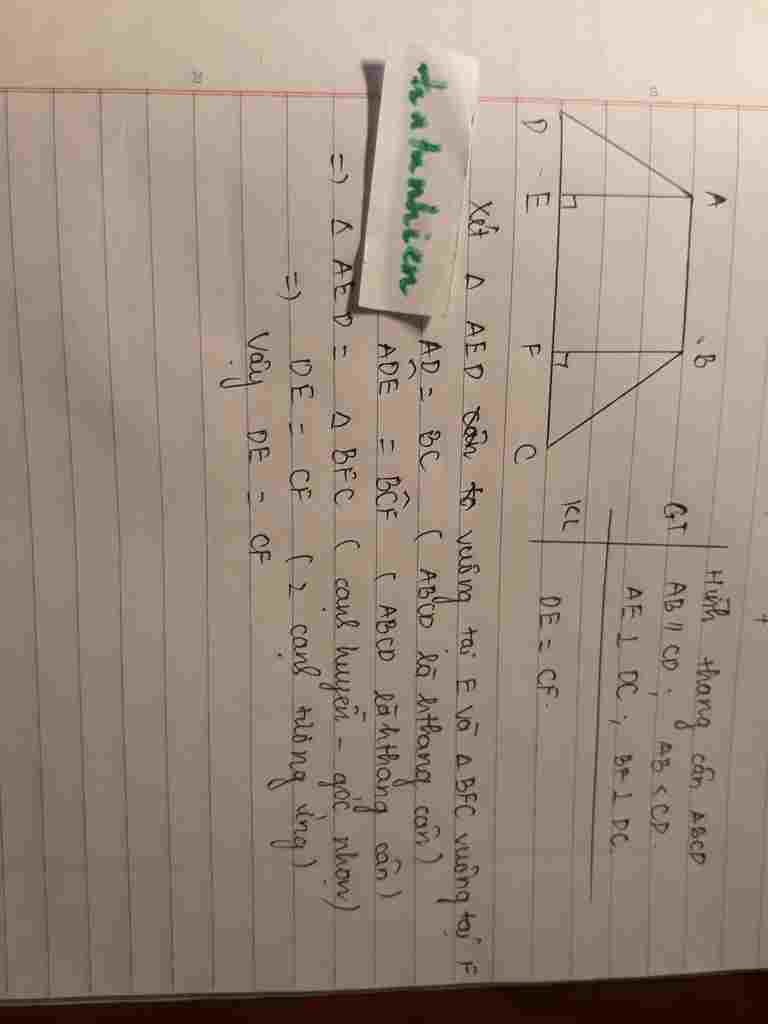 A
B
D
E
F
C
GT
Hình thang cân ABCD
AB // CD, AB < CD.
AE ⊥ DC; BF ⊥ DC.
KL
DE = CF.
Xét Δ AED vuông tại E và Δ BFC vuông tại F
AD = BC ( ABCD là hthang cân )
ADÊ = BĈF ( ABCD là hthang cân )
=) Δ AED = Δ BFC ( cạnh huyền - góc nhọn )
=) DE = CF ( 2 cạnh tương ứng )
Vậy DE = CF